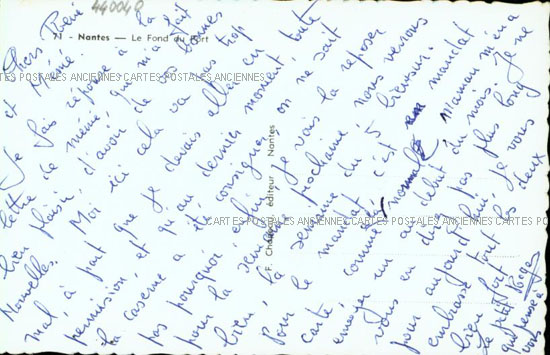 440040
71 - Nantes — Le Fond du Port
F. Chapeau, éditeur, Nantes
CARTES POSTALES ANCIENNES CARTES POSTALES ANCIENNES CARTES POSTALES ANCIENNES
CARTES POSTALES ANCIENNES CARTES POSTALES ANCIENNES CARTES POSTALES ANCIENNES
Chers Pépé
et Mémé
Je fais réponse à la
lettre de mémé, qui m'a fait
bien plaisir, d'avoir de vos bonnes
Nouvelles. Moi ici cela va pas trop
mal, à part que je devais aller en
permission, et qu'au dernier moment toute
la caserne a été consignée, on ne sait
pas pourquoi, enfin je vais la reposer
pour la semaine prochaine, nous verrons
bien, la semaine du 5
Pour le mandat c'est mandat
carte, normal, Maman m'en a
envoyer un au début du mois. Je ne
vous en dis pas plus long
pour aujourd'hui, je vous
embrasse tout les deux
bien fort
le petit
qui pense à
vous